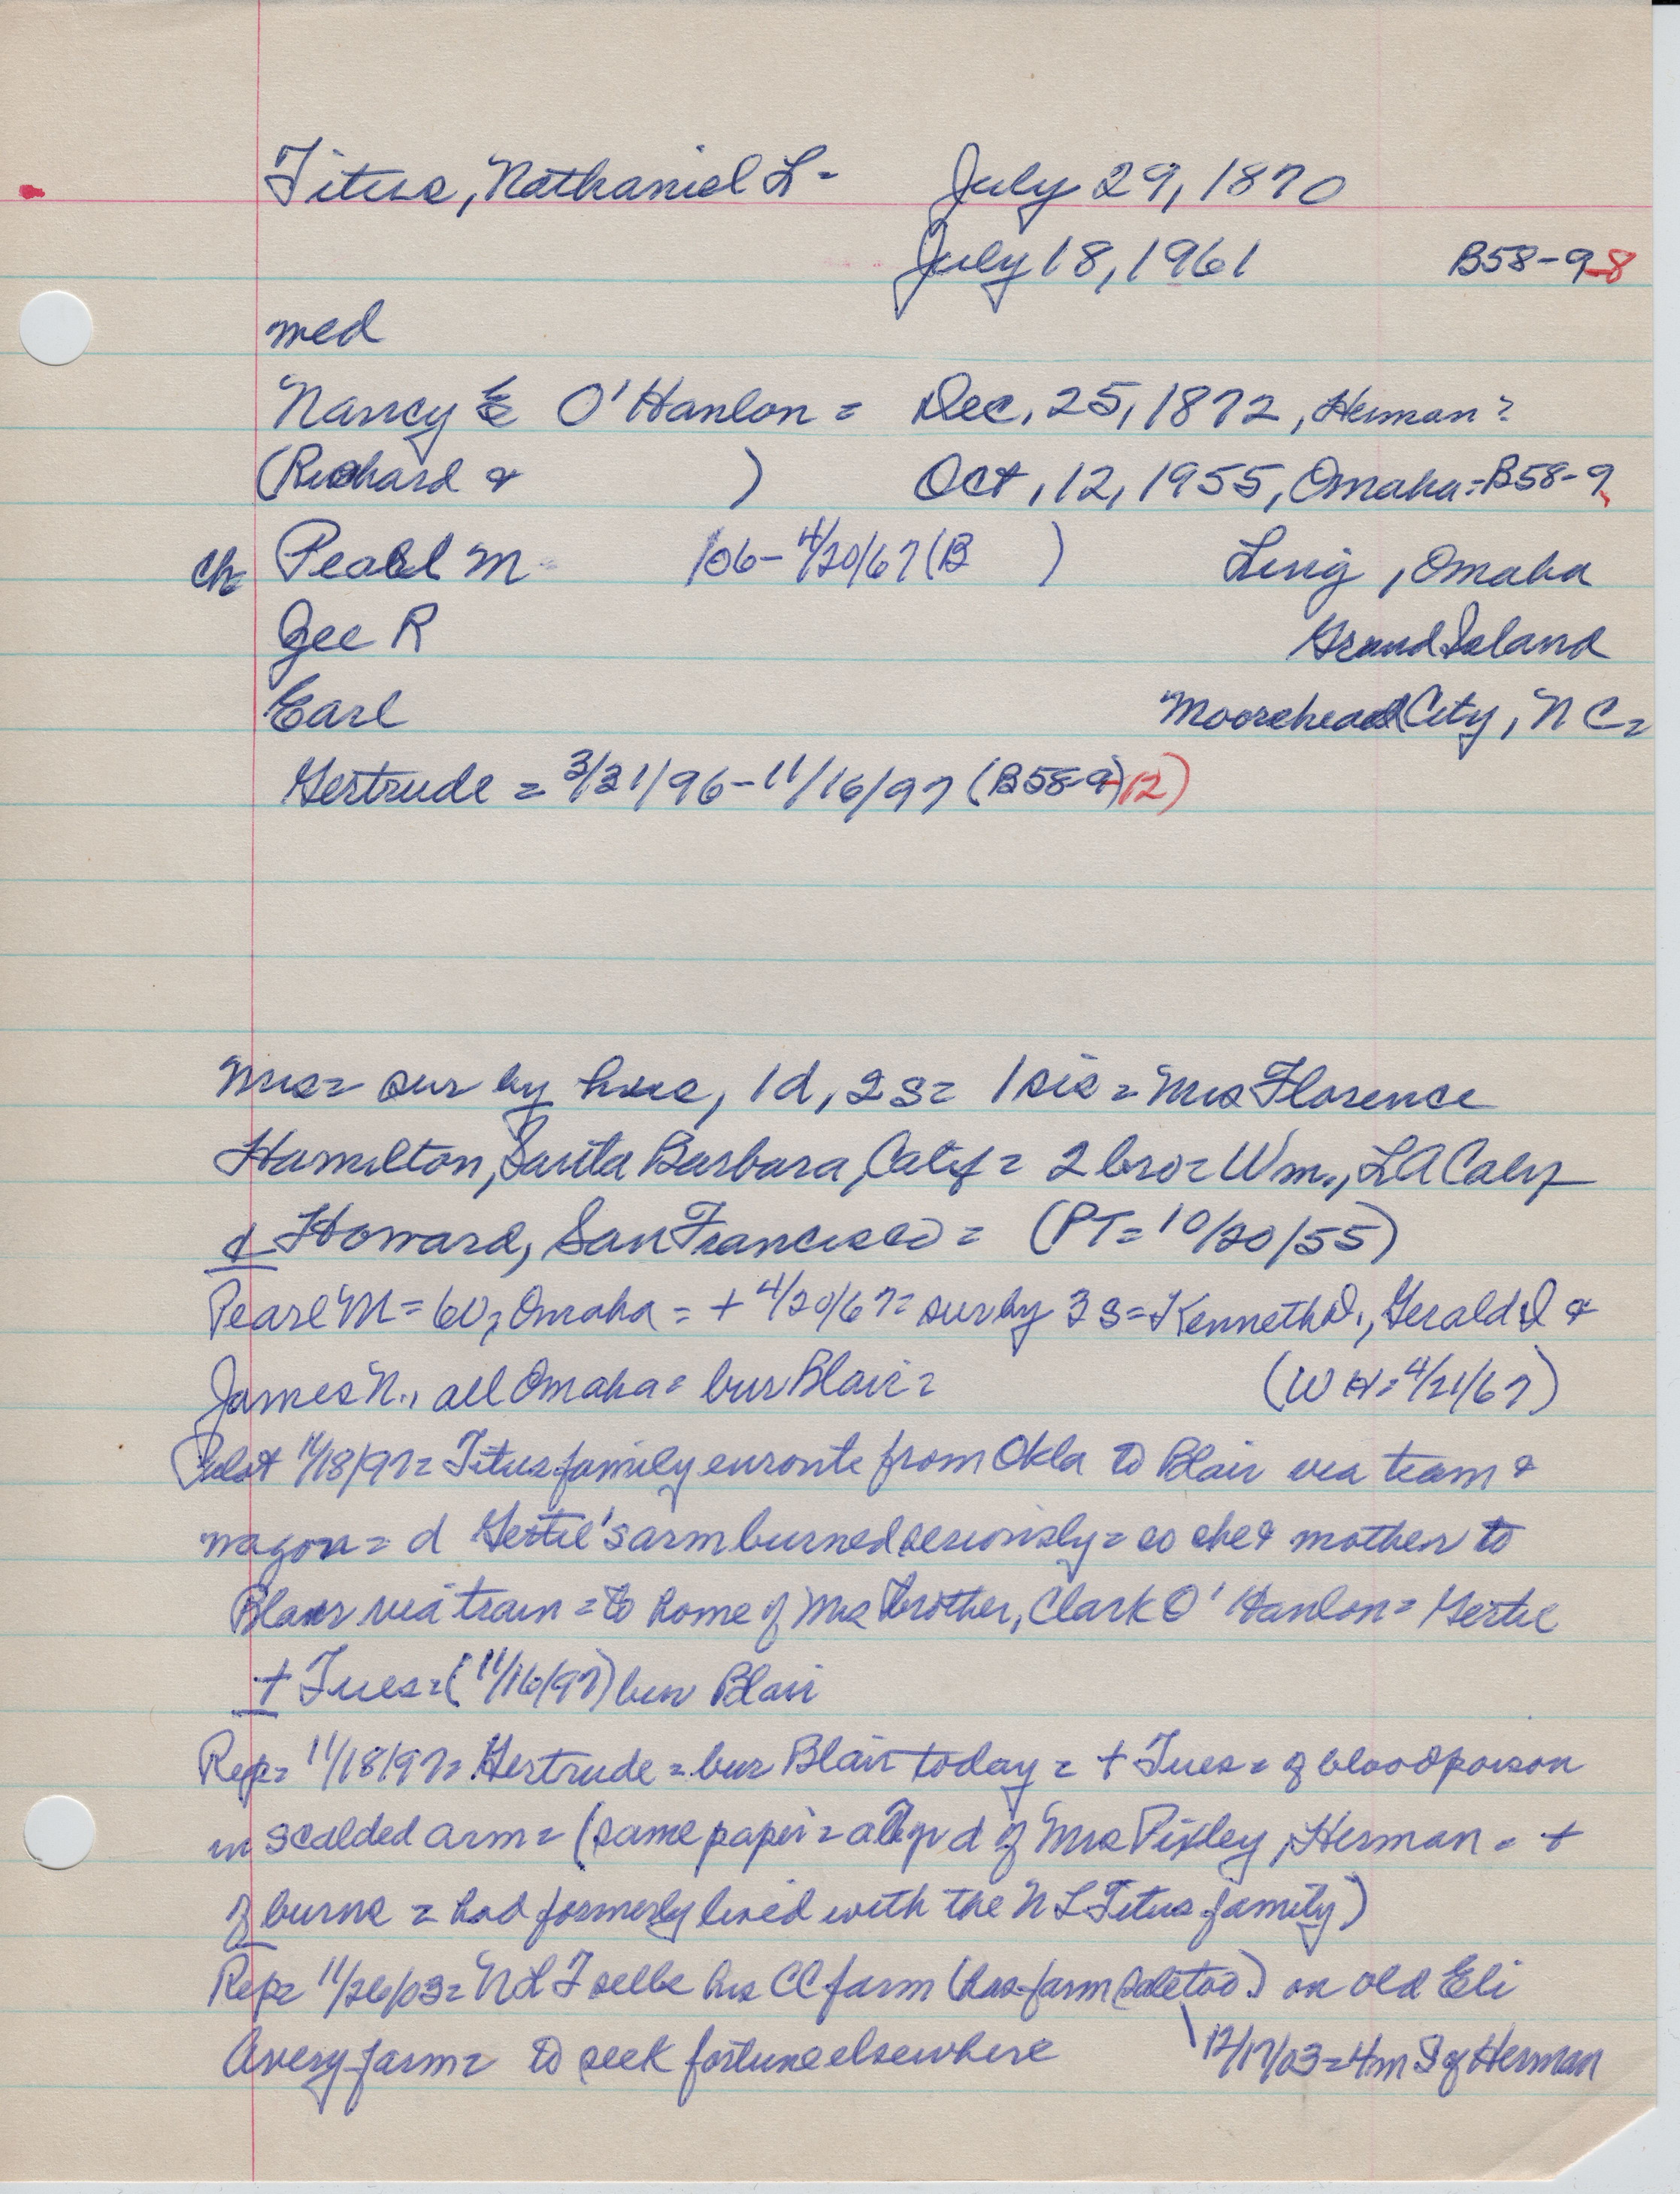 Titus, Nathaniel L - July 29, 1870
July 18, 1961 B58-9-8
med
Nancy E O'Hanlon = Dec. 25, 1872, Herman =
(Richard & ) Oct, 12, 1955, Omaha = B58-9
ch Pearl M 106 - 4/20/67 (B ) , Omaha
Gee R Grand Island
Earl Moorehead City, N C =
Gertrude = 3/31/96 - 11/16/97 (B58-9-12)
Mrs = sur by hus, 1 d, 2 s = 1 sis = Mrs Florence
Hamilton, Santa Barbara, Calif = 2 bro = Wm., LA Calif
& Howard, San Francisco = (PT = 10/20/55)
Pearl M = 60, Omaha = + 4/20/67 = sur by 3 s = Kenneth D., Gerald D &
James N., all Omaha = bur Blair = (W H = 4/21/67)
Pilot 11/18/97 = Titus family enroute from Okla to Blair via team &
wagon = d Gertie's arm burned seriously = so she & mother to
Blair via train = to home of Mrs brother, Clark O'Hanlon = Gertie
+ Tues = (11/16/97) bur Blair
Rep = 11/18/97 = Gertrude = bur Blair today = + Tues = of blood poison
in scalded arm = (same paper = d of Mrs Pixley, Herman = +
of burns = had formerly lived with the N L Titus family)
Rep = 11/26/03 = N L T sells his CC farm (has farm sale too) on old Eli
Avery farm = to seek fortune elsewhere \ 12/17/03 = 4 m S of Herman